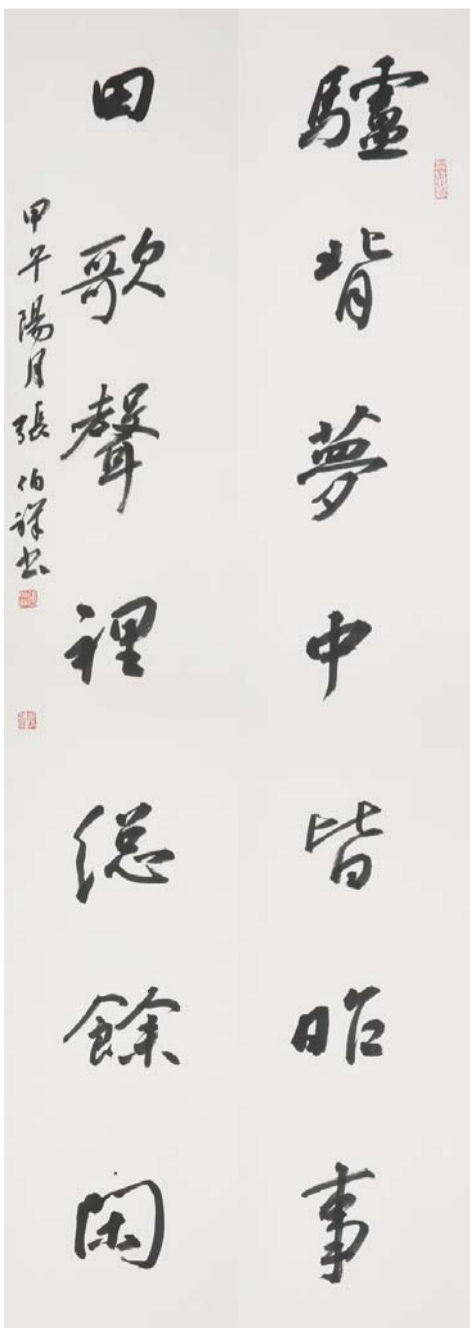 驢背夢中皆昨事
田歌聲裡總餘閑
甲午陽月張伯祥書